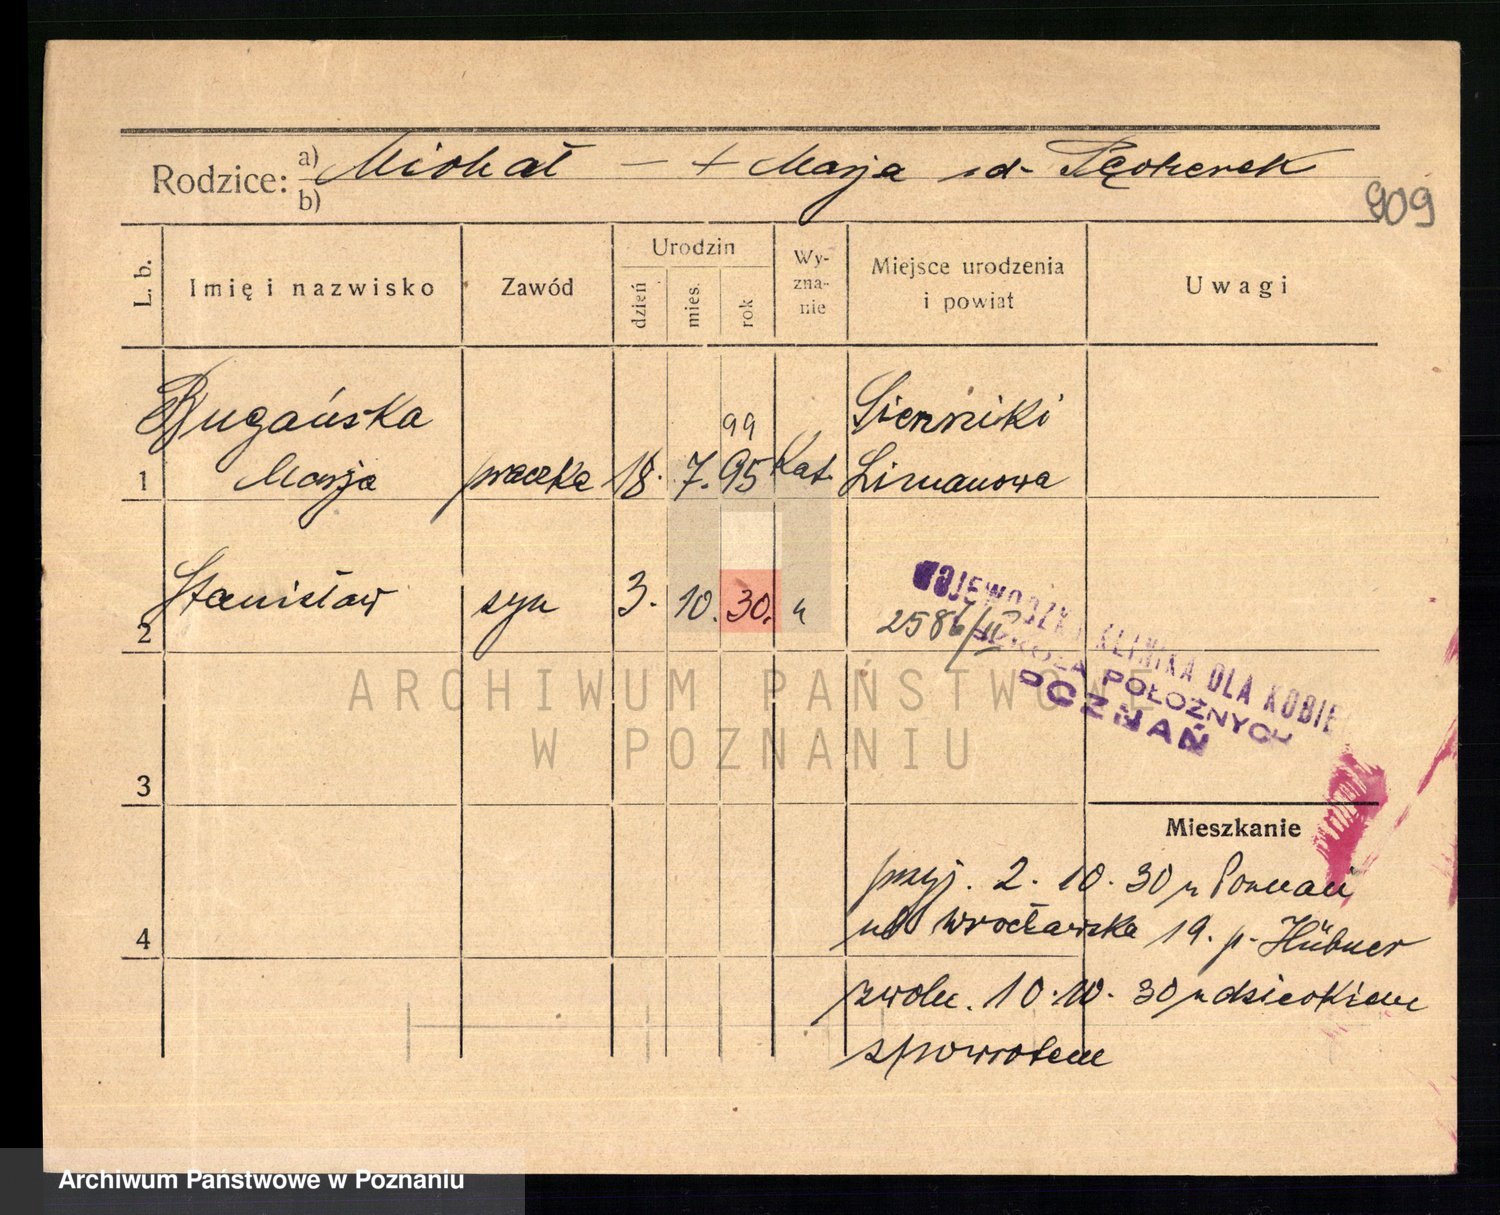 Rodzice: a) Michał — + Marja z d.
b)
909
L. b.
Imię i nazwisko
Zawód
Urodzin
dzień
mies.
rok
Wy-
zna-
nie
Miejsce urodzenia
i powiat
Uwagi
Bugańska
99
1 Marja praczka 18. 7. 95 Kat. Limanowa
2 Stanisław syn 3. 10. 30. "
WOJEWÓDZKA KLINIKA DLA KOBIE
2586/II
SZKOŁA POŁOŻNYCH
POZNAŃ
ARCHIWUM PAŃSTWOWE
W POZNANIU
3
Mieszkanie
przyj. 2. 10. 30 z Poznań
4
ul Wrocławska 19. p. Hübner
zwoln. 10. 10. 30 z dzieckiem
zpowrotem
Archiwum Państwowe w Poznaniu